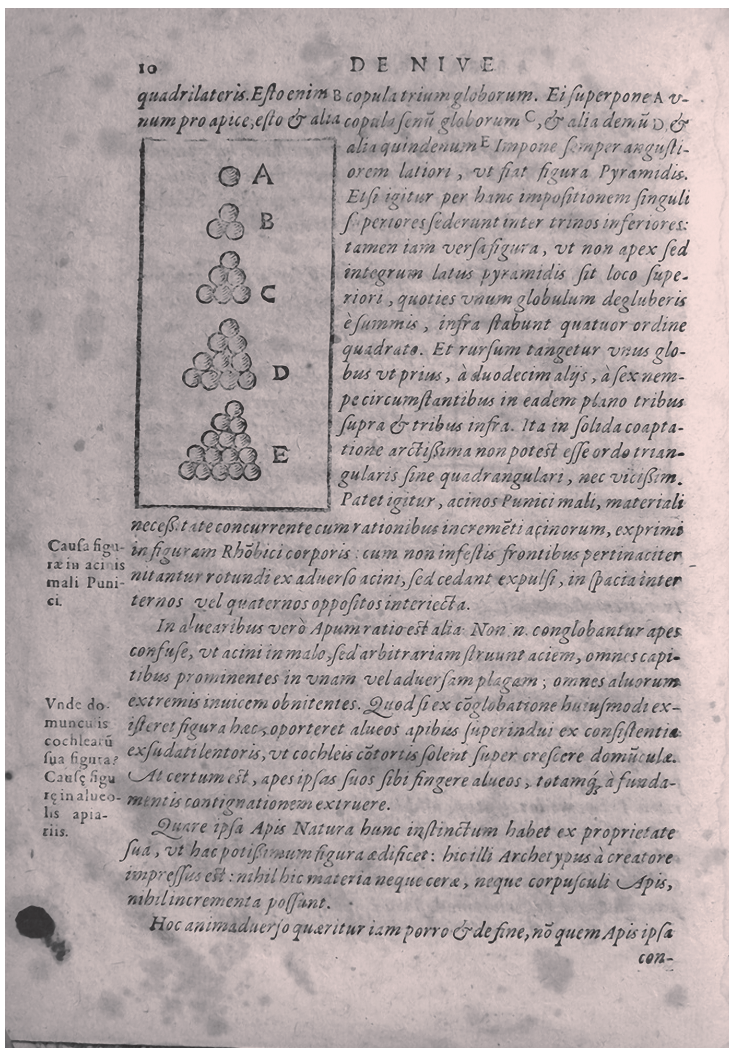 10
DE NIVE
quadrilateris. Esto enim B copula trium globorum. Ei superpone A v-
num pro apice, esto & alia copula senû globorum C, & alia demû D, &
alia quindenum E Impone semper angusti-
orem latiori, vt fiat figura Pyramidis.
Etsi igitur per hanc impositionem singuli
superiores sederunt inter trinos inferiores:
tamen iam versa figura, vt non apex sed
integrum latus pyramidis sit loco supe-
riori, quoties vnum globulum degluberis
è summis, infra stabunt quatuor ordine
quadrato. Et rursum tangetur vnus glo-
bus vt prius, à duodecim alijs, à sex nem-
pe circumstantibus in eadem plano tribus
supra & tribus infra. Ita in solida coapta-
tione arctißima non potest esse ordo trian-
gularis sine quadrangulari, nec vicißim.
Patet igitur, acinos Punici mali, materiali
A
B
C
D
E
neceßitate concurrente cum rationibus incremẽti acinorum, exprimi
in figuram Rhõbici corporis: cum non infestis frontibus pertinaciter
nitantur rotundi ex aduerso acini, sed cedant expulsi, in spacia inter
ternos vel quaternos oppositos interiecta.
Causa figu-
ræ in acinis
mali Puni-
ci.
In aluearibus verò Apum ratio est alia. Non n. conglobantur apes
confuse, vt acini in malo, sed arbitrariam struunt aciem, omnes capi-
tibus prominentes in vnam vel aduersam plagam; omnes aluorum
extremis inuicem obnitentes. Quod si ex cõglobatione huiusmodi ex-
isteret figura hæc, oporteret alueos apibus superindui ex consistentia
exsudati lentoris, vt cochleis cõtortis solent super crescere domũculæ.
At certum est, apes ipsas suos sibi fingere alueos, totamq́; à funda-
mentis contignationem extruere.
Vnde do-
munculis
cochlearũ
sua figura?
Causę figu
rę in alueo-
lis apia-
riis.
Quare ipsa Apis Natura hunc instinctum habet ex proprietate
sua, vt hac potißimum figura ædificet: hic illi Archetypus à creatore
impressus est: nihil hic materia neque ceræ, neque corpusculi Apis,
nihil incrementa possunt.
Hoc animaduerso quæritur iam porro & de fine, nõ quem Apis ipsa
con-